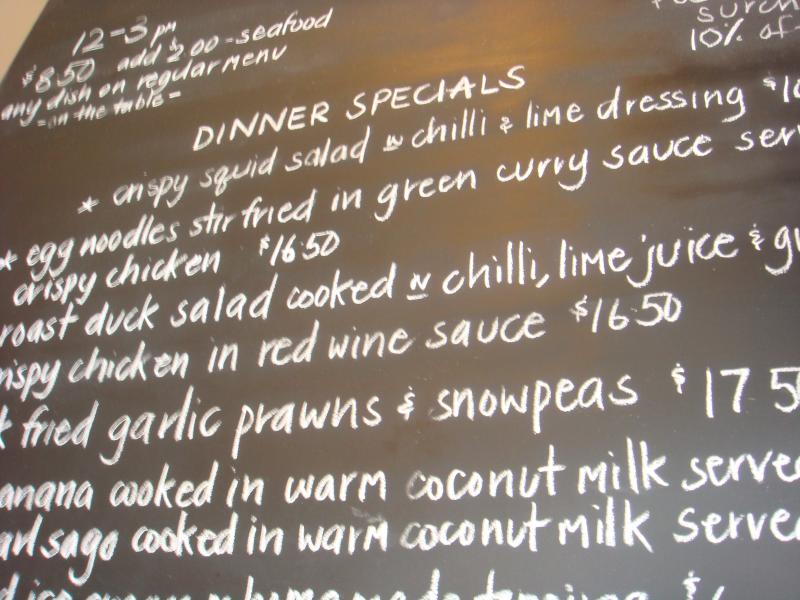 12-3pm
$8.50 add $2.00 - seafood
any dish on regular menu
- on the table -
surch
10% of
DINNER SPECIALS
* crispy squid salad w chilli & lime dressing $1
* egg noodles stir fried in green curry sauce ser
crispy chicken $16.50
roast duck salad cooked w chilli, lime juice & g
rispy chicken in red wine sauce $16.50
k fried garlic prawns & snowpeas $17.5
anana cooked in warm coconut milk serve
arl sago cooked in warm coconut milk serve
d ice cream w homemade topping $